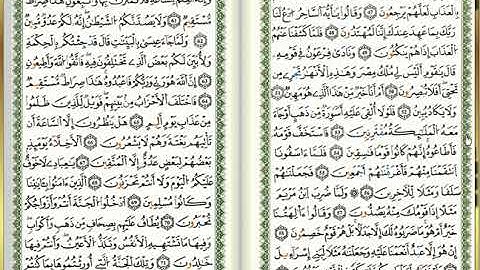 بِالْعَذَابِ لَعَلَّهُمْ يَرْجِعُونَ ٤٨ وَقَالُوا يَٰأَيُّهَ السَّاحِرُ ادْعُ لَنَا
رَبَّكَ بِمَا عَهِدَ عِندَكَ إِنَّنَا لَمُهْتَدُونَ ٤٩ فَلَمَّا كَشَفْنَا عَنْهُمُ
الْعَذَابَ إِذَا هُمْ يَنكُثُونَ ٥٠ وَنَادَىٰ فِرْعَوْنُ فِي قَوْمِهِ
قَالَ يَٰقَوْمِ أَلَيْسَ لِي مُلْكُ مِصْرَ وَهَٰذِهِ الْأَنْهَٰرُ تَجْرِي مِن
تَحْتِي أَفَلَا تُبْصِرُونَ ٥١ أَمْ أَنَا خَيْرٌ مِّنْ هَٰذَا الَّذِي هُوَ مَهِينٌ
وَلَا يَكَادُ يُبِينُ ٥٢ فَلَوْلَا أُلْقِيَ عَلَيْهِ أَسْوِرَةٌ مِّن ذَهَبٍ أَوْ جَاءَ
مَعَهُ الْمَلَٰئِكَةُ مُقْتَرِنِينَ ٥٣ فَاسْتَخَفَّ قَوْمَهُ
فَأَطَاعُوهُ إِنَّهُمْ كَانُوا قَوْمًا فَٰسِقِينَ ٥٤ فَلَمَّا ءَاسَفُونَا
انتَقَمْنَا مِنْهُمْ فَأَغْرَقْنَٰهُمْ أَجْمَعِينَ ٥٥ فَجَعَلْنَٰهُمْ
سَلَفًا وَمَثَلًا لِّلْءَاخِرِينَ ٥٦ ۞ وَلَمَّا ضُرِبَ ابْنُ مَرْيَمَ
مَثَلًا إِذَا قَوْمُكَ مِنْهُ يَصِدُّونَ ٥٧ وَقَالُوا ءَأَٰلِهَتُنَا
خَيْرٌ أَمْ هُوَ مَا ضَرَبُوهُ لَكَ إِلَّا جَدَلًا بَلْ هُمْ قَوْمٌ خَصِمُونَ ٥٨
إِنْ هُوَ إِلَّا عَبْدٌ أَنْعَمْنَا عَلَيْهِ وَجَعَلْنَٰهُ مَثَلًا لِّبَنِي إِسْرَٰءِيلَ ٥٩
مُّسْتَقِيمٌ ٦١ وَلَا يَصُدَّنَّكُمُ الشَّيْطَٰنُ إِنَّهُ لَكُمْ عَدُوٌّ مُّبِينٌ
٦٢ وَلَمَّا جَاءَ عِيسَىٰ بِالْبَيِّنَٰتِ قَالَ قَدْ جِئْتُكُم بِالْحِكْمَةِ
وَلِأُبَيِّنَ لَكُم بَعْضَ الَّذِي تَخْتَلِفُونَ فِيهِ فَاتَّقُوا اللَّهَ وَأَطِيعُونِ
٦٣ إِنَّ اللَّهَ هُوَ رَبِّي وَرَبُّكُمْ فَاعْبُدُوهُ هَٰذَا صِرَٰطٌ مُّسْتَقِيمٌ
٦٤ فَاخْتَلَفَ الْأَحْزَابُ مِن بَيْنِهِمْ فَوَيْلٌ لِّلَّذِينَ ظَلَمُوا
مِنْ عَذَابِ يَوْمٍ أَلِيمٍ ٦٥ هَلْ يَنظُرُونَ إِلَّا السَّاعَةَ أَن
تَأْتِيَهُم بَغْتَةً وَهُمْ لَا يَشْعُرُونَ ٦٦ الْأَخِلَّاءُ يَوْمَئِذٍ
بَعْضُهُمْ لِبَعْضٍ عَدُوٌّ إِلَّا الْمُتَّقِينَ ٦٧ يَٰعِبَادِ لَا خَوْفٌ
عَلَيْكُمُ الْيَوْمَ وَلَا أَنتُمْ تَحْزَنُونَ ٦٨ الَّذِينَ ءَامَنُوا بِـَٔايَٰتِنَا
وَكَانُوا مُسْلِمِينَ ٦٩ ادْخُلُوا الْجَنَّةَ أَنتُمْ وَأَزْوَٰجُكُمْ
تُحْبَرُونَ ٧٠ يُطَافُ عَلَيْهِم بِصِحَافٍ مِّن ذَهَبٍ وَأَكْوَابٍ
وَفِيهَا مَا تَشْتَهِيهِ الْأَنفُسُ وَتَلَذُّ الْأَعْيُنُ وَأَنتُمْ فِيهَا
خَٰلِدُونَ ٧١ وَتِلْكَ الْجَنَّةُ الَّتِي أُورِثْتُمُوهَا بِمَا كُنتُمْ